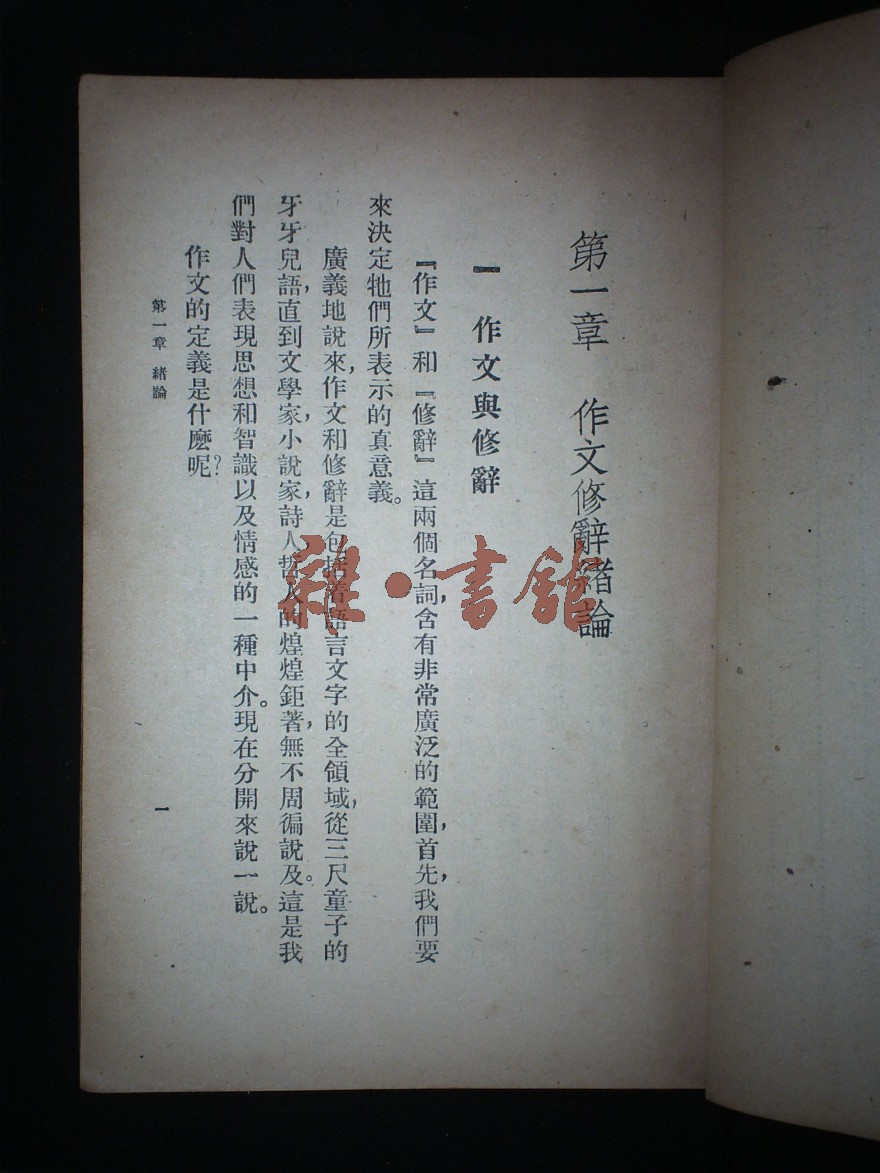 第一章　作文修辭緒論
一　作文與修辭
『作文』和『修辭』這兩個名詞，含有非常廣泛的範圍，首先，我們要
來決定牠們所表示的真意義。
廣義地說來，作文和修辭是包括着語言文字的全領域，從三尺童子的
牙牙兒語，直到文學家，小說家，詩人，哲人的煌煌鉅著，無不周徧說及。這是我
們對人們表現思想和智識以及情感的一種中介。現在分開來說一說。
作文的定義是什麽呢？
第一章　緒論
一
雜·書館